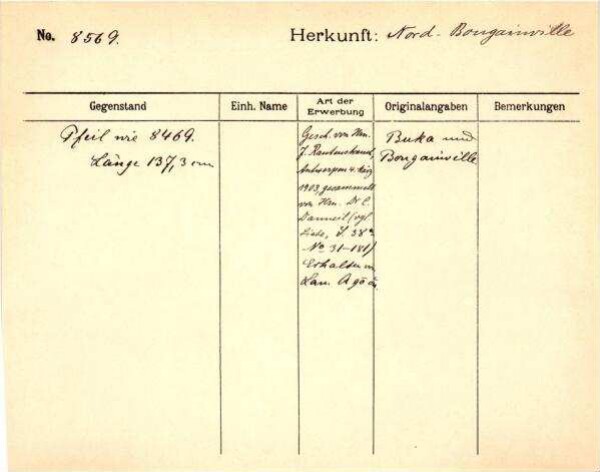 No. 8569.
Herkunft: Nord-Bougainville
Gegenstand
Einh. Name
Art der
Erwerbung
Originalangaben
Bemerkungen
Pfeil wie 8469.
Länge 137,3 cm
Gesch. von Hrn.
J. Rautenstrauch,
Antwerpen
1903, gesammelt
von Hrn. Dr. C.
Danneil (vgl.
Liste, S. 38
No 31-181)
Erhalten
Buka und
Bougainville